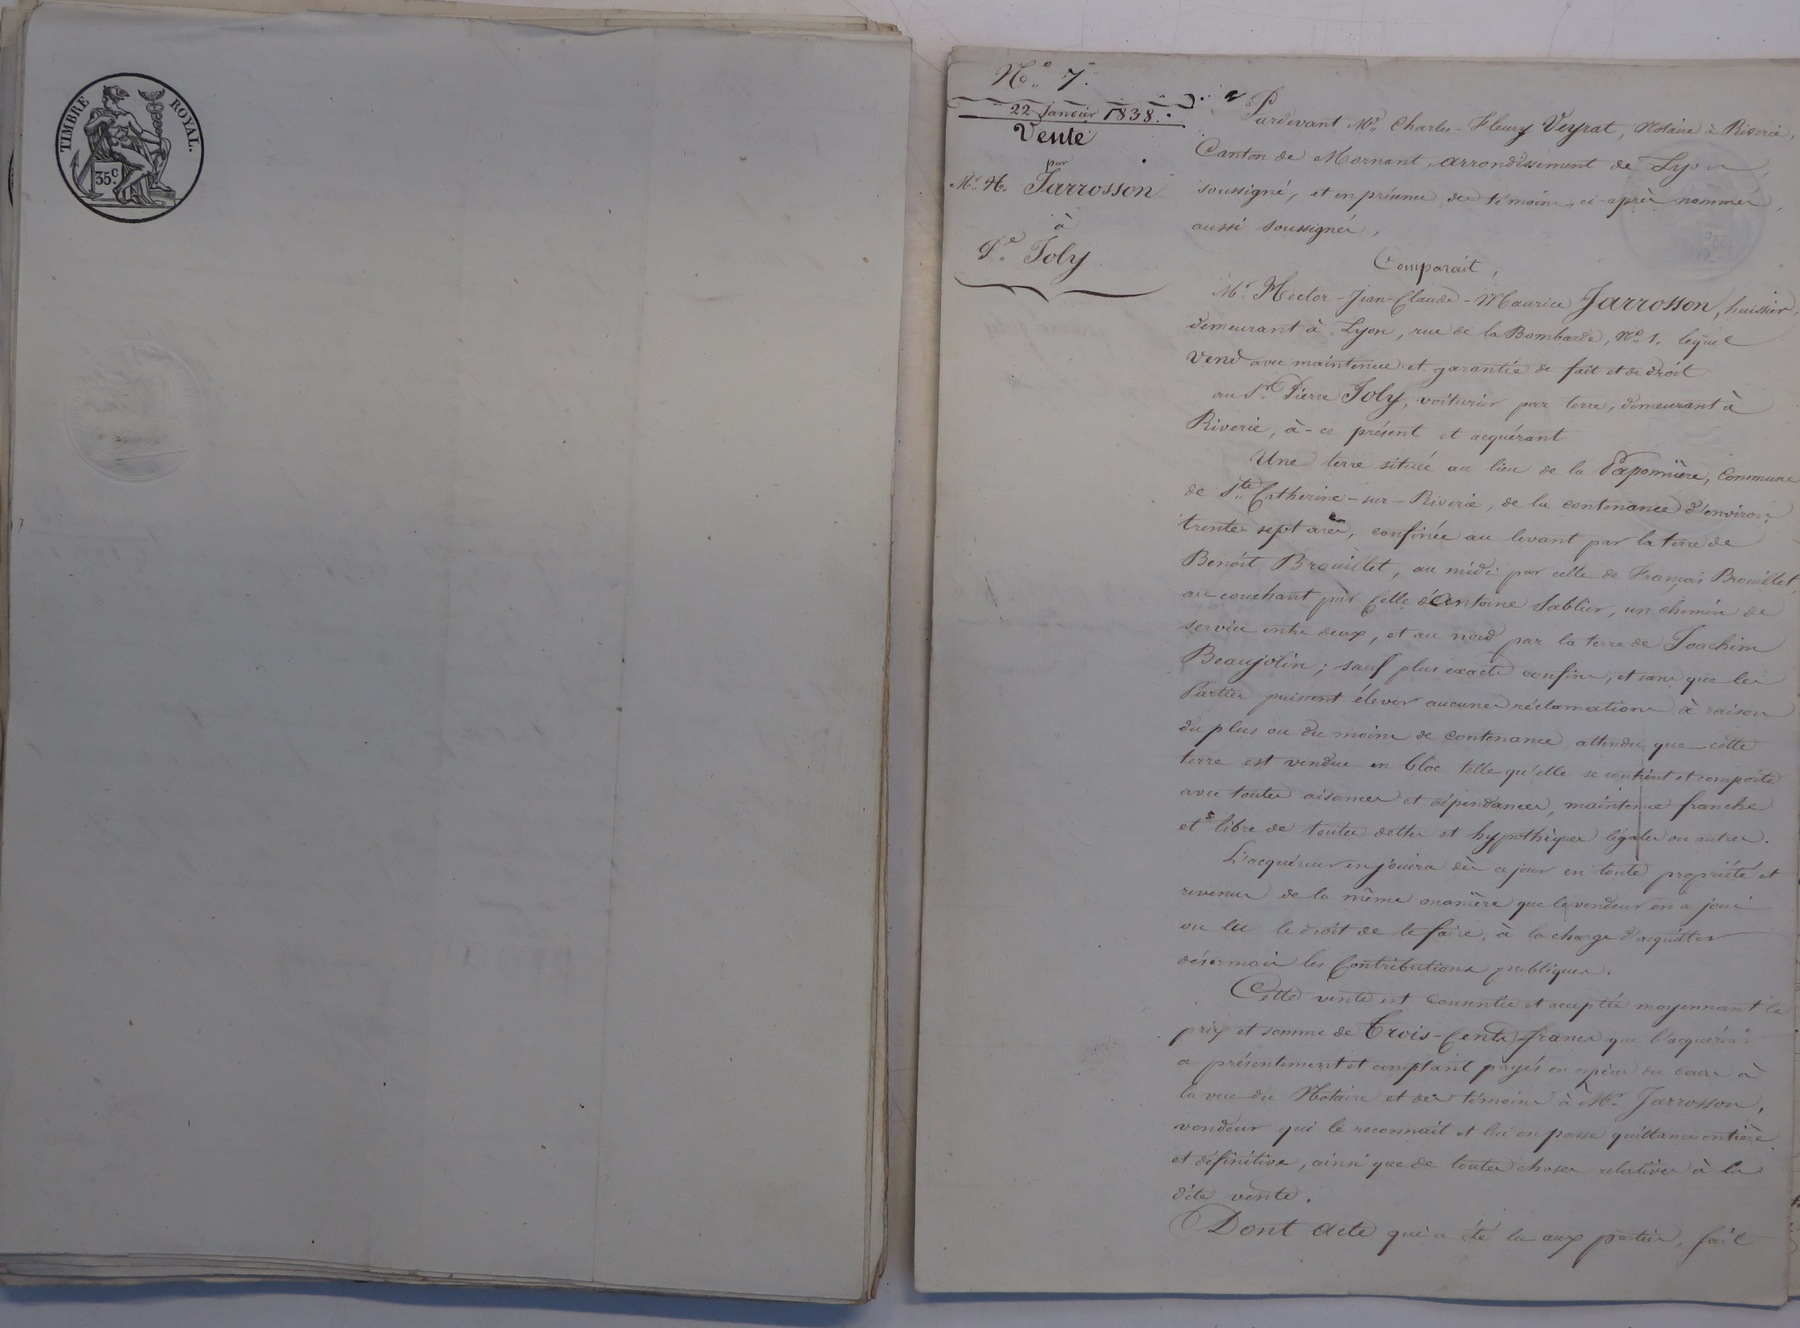 TIMBRE ROYAL.
35c
No. 7.
22 Janvier 1838.
Vente
par
Mr. H. Jarrosson
à
Sr. Joly
Pardevant Me. Charles-Fleury Veyrat, Notaire à Riverie,
Canton de Mornant, arrondissement de Lyon,
soussigné, et en présence des témoins ci-après nommés,
aussi soussignés,
Comparait,
Mr. Hector-Jean-Claude-Maurice Jarrosson, huissier,
demeurant à Lyon, rue de la Bombarde, No. 1. lequel
Vend avec maintenue et garantie de fait et de droit
au Sr. Pierre Joly, voiturier par terre, demeurant à
Riverie, à-ce présent et acquérant
Une terre située au lieu de la Paponnière, Commune
de Ste. Catherine-sur-Riverie, de la contenance d'environ
trente sept ares, confinée au levant par la terre de
Benoît Brouillet, au midi par celle de François Brouillet,
au couchant par Celle d'Antoine Sablier, un chemin de
service entre deux, et au nord par la terre de Joachim
Beaujolin; sauf plus exacts confins, et sans que les
Parties puissent élever aucunes réclamations à raison
du plus ou du moins de contenance, attendu que cette
terre est vendue en bloc telle qu'elle se contient et comporte
avec toutes aisances et dépendances, maintenue franche
et libre de toutes dettes et hypothèques légales ou autres.
L'acquéreur en jouira dès ce jour en toute propriété et
revenus de la même manière que le vendeur en a joui
ou eu le droit de le faire, à la charge d'acquitter
désormais les Contributions publiques.
Cette vente est consentie et acceptée moyennant le
prix et somme de Trois-Cents francs que l'acquéreur
a présentement et comptant payés en espèces du cours à
la vue du Notaire et des témoins à Mr. Jarrosson,
vendeur qui le reconnait et lui en passe quittance entière
et définitive, ainsi que de toutes choses relatives à la
dite vente.
Dont Acte qui a été lu aux parties, fait